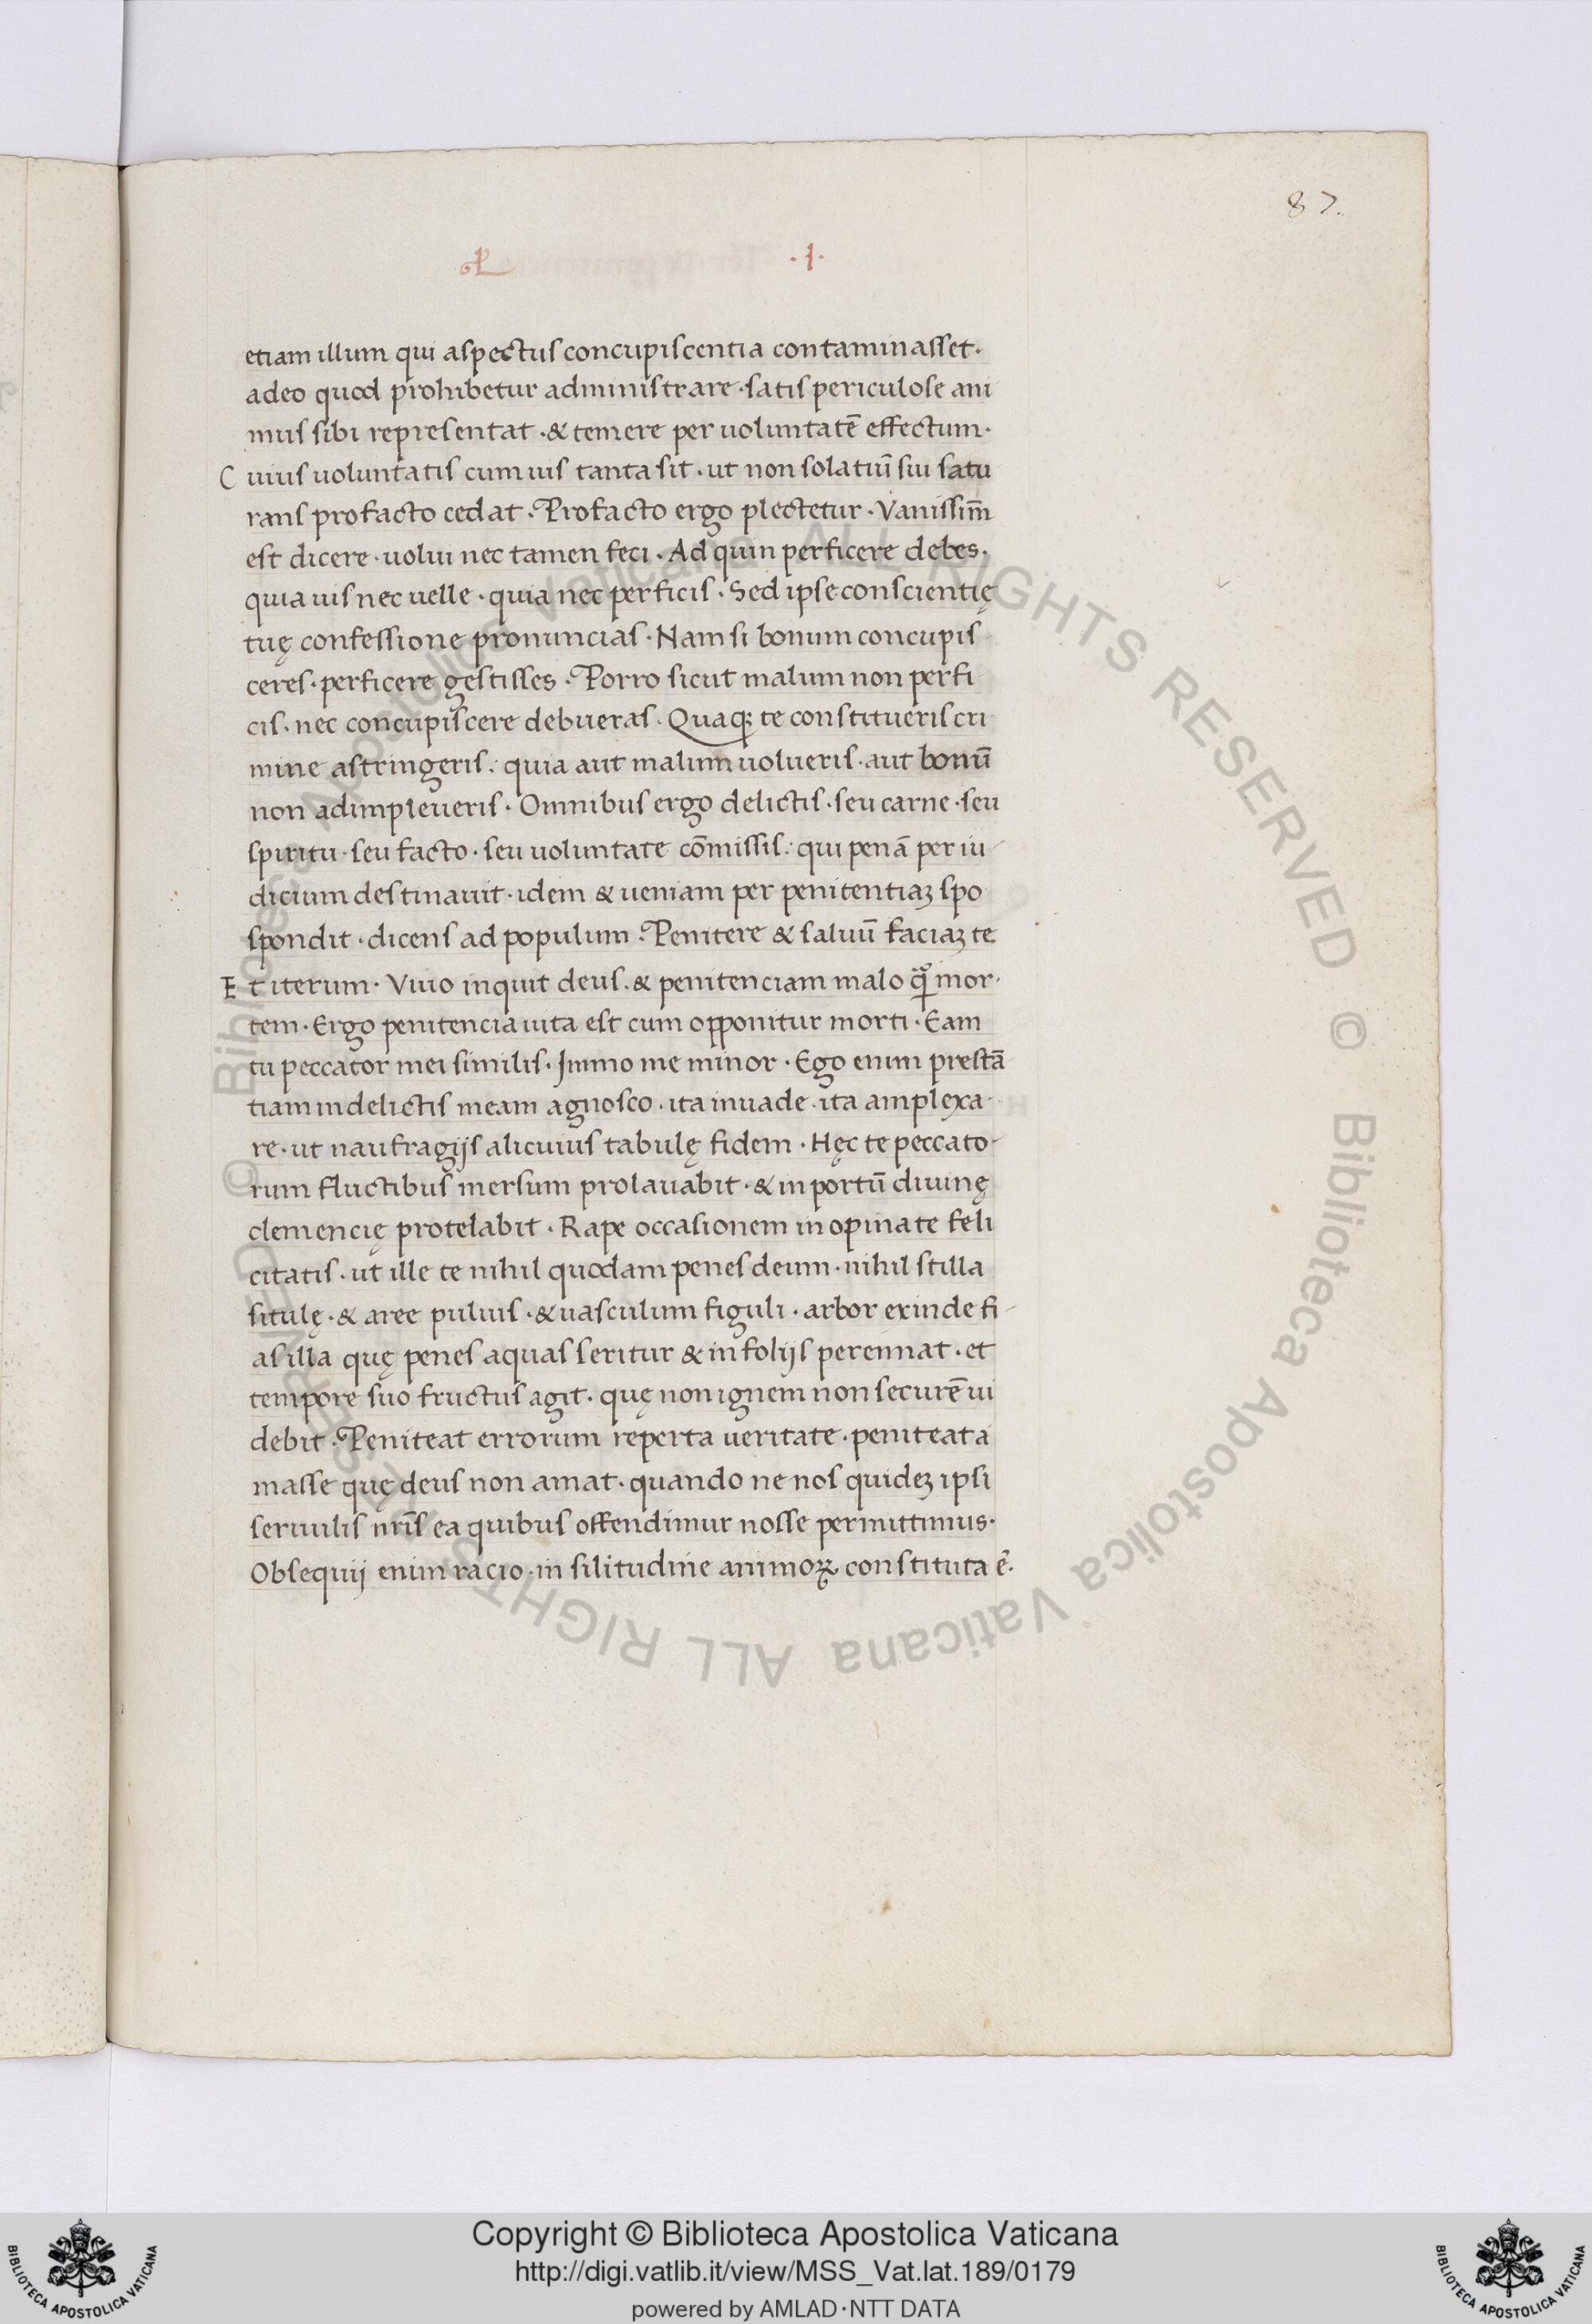 87.
·I·
etiam illum qui aspectus concupiscentia contaminasset·
adeo quod prohibetur administrare·satis periculose ani
mus sibi representat·& temere per uoluntatē effectum·
Cuius uoluntatis cum uis tanta sit·ut non solatiū sui satu
rans profacto cedat·Profacto ergo plectetur·Vanissim̄
est dicere·uolui nec tamen feci·Adquin perficere debes·
quia uis nec uelle·quia nec perficis·Sed ipse conscientię
tuę confessione pronuncias·Nam si bonum concupis
ceres·perficere gestisses·Porro sicut malum non perfi
cis·nec concupiscere debueras·Quaqȝ te constitueris cri
mine astringeris·quia aut malum uolueris·aut bonū
non adimpleueris·Omnibus ergo delictis·seu carne·seu
spiritu·seu facto·seu uoluntate cōmissis·qui penā per iu-
dicium destinauit·idem & ueniam per penitentiaȝ spo
spondit·dicens ad populum·Penitere & saluū faciaȝ te
Et iterum·Viuo inquit deus·& penitenciam malo q̄ȝ mor-
tem·Ergo penitencia uita est cum opponitur morti·Eam
tu peccator mei similis·Immo me minor·Ego enim prestā-
tiam in delictis meam agnosco·ita inuade·ita amplexa-
re·ut naufragijs alicuius tabulę fidem·Hęc te peccato-
rum fluctibus mersum prolauabit·& in portū diuinę
clemencię protelabit·Rape occasionem inopinate feli
citatis·ut ille te nihil quodam penes deum·nihil stilla
situlę·& aree puluis·& uasculum figuli·arbor exinde fi-
as illa quę penes aquas seritur & in folijs perennat·et
tempore suo fructus agit·quę non ignem non securē ui
debit·Peniteat errorum reperta ueritate·peniteat a
masse quę deus non amat·quando ne nos quideȝ ipsi
seruulis nr̄is ea quibus offendimur nosse permittimus·
Obsequij enim racio·in silitudine animoꝝ constituta ē·
© Biblioteca Apostolica Vaticana ALL RIGHTS RESERVED © Biblioteca Apostolica Vaticana ALL RIGHTS RESERVED
Copyright © Biblioteca Apostolica Vaticana
http://digi.vatlib.it/view/MSS_Vat.lat.189/0179
powered by AMLAD·NTT DATA
BIBLIOTECA APOSTOLICA VATICANA
BIBLIOTECA APOSTOLICA VATICANA